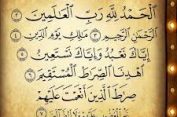 الْحَمْدُ لِلَّهِ رَبِّ الْعَالَمِينَ ٢
الرَّحْمَٰنِ الرَّحِيمِ ٣ مَالِكِ يَوْمِ الدِّينِ ٤
إِيَّاكَ نَعْبُدُ وَإِيَّاكَ نَسْتَعِينُ ٥
اهْدِنَا الصِّرَاطَ الْمُسْتَقِيمَ ٦
صِرَاطَ الَّذِينَ أَنْعَمْتَ عَلَيْهِمْ